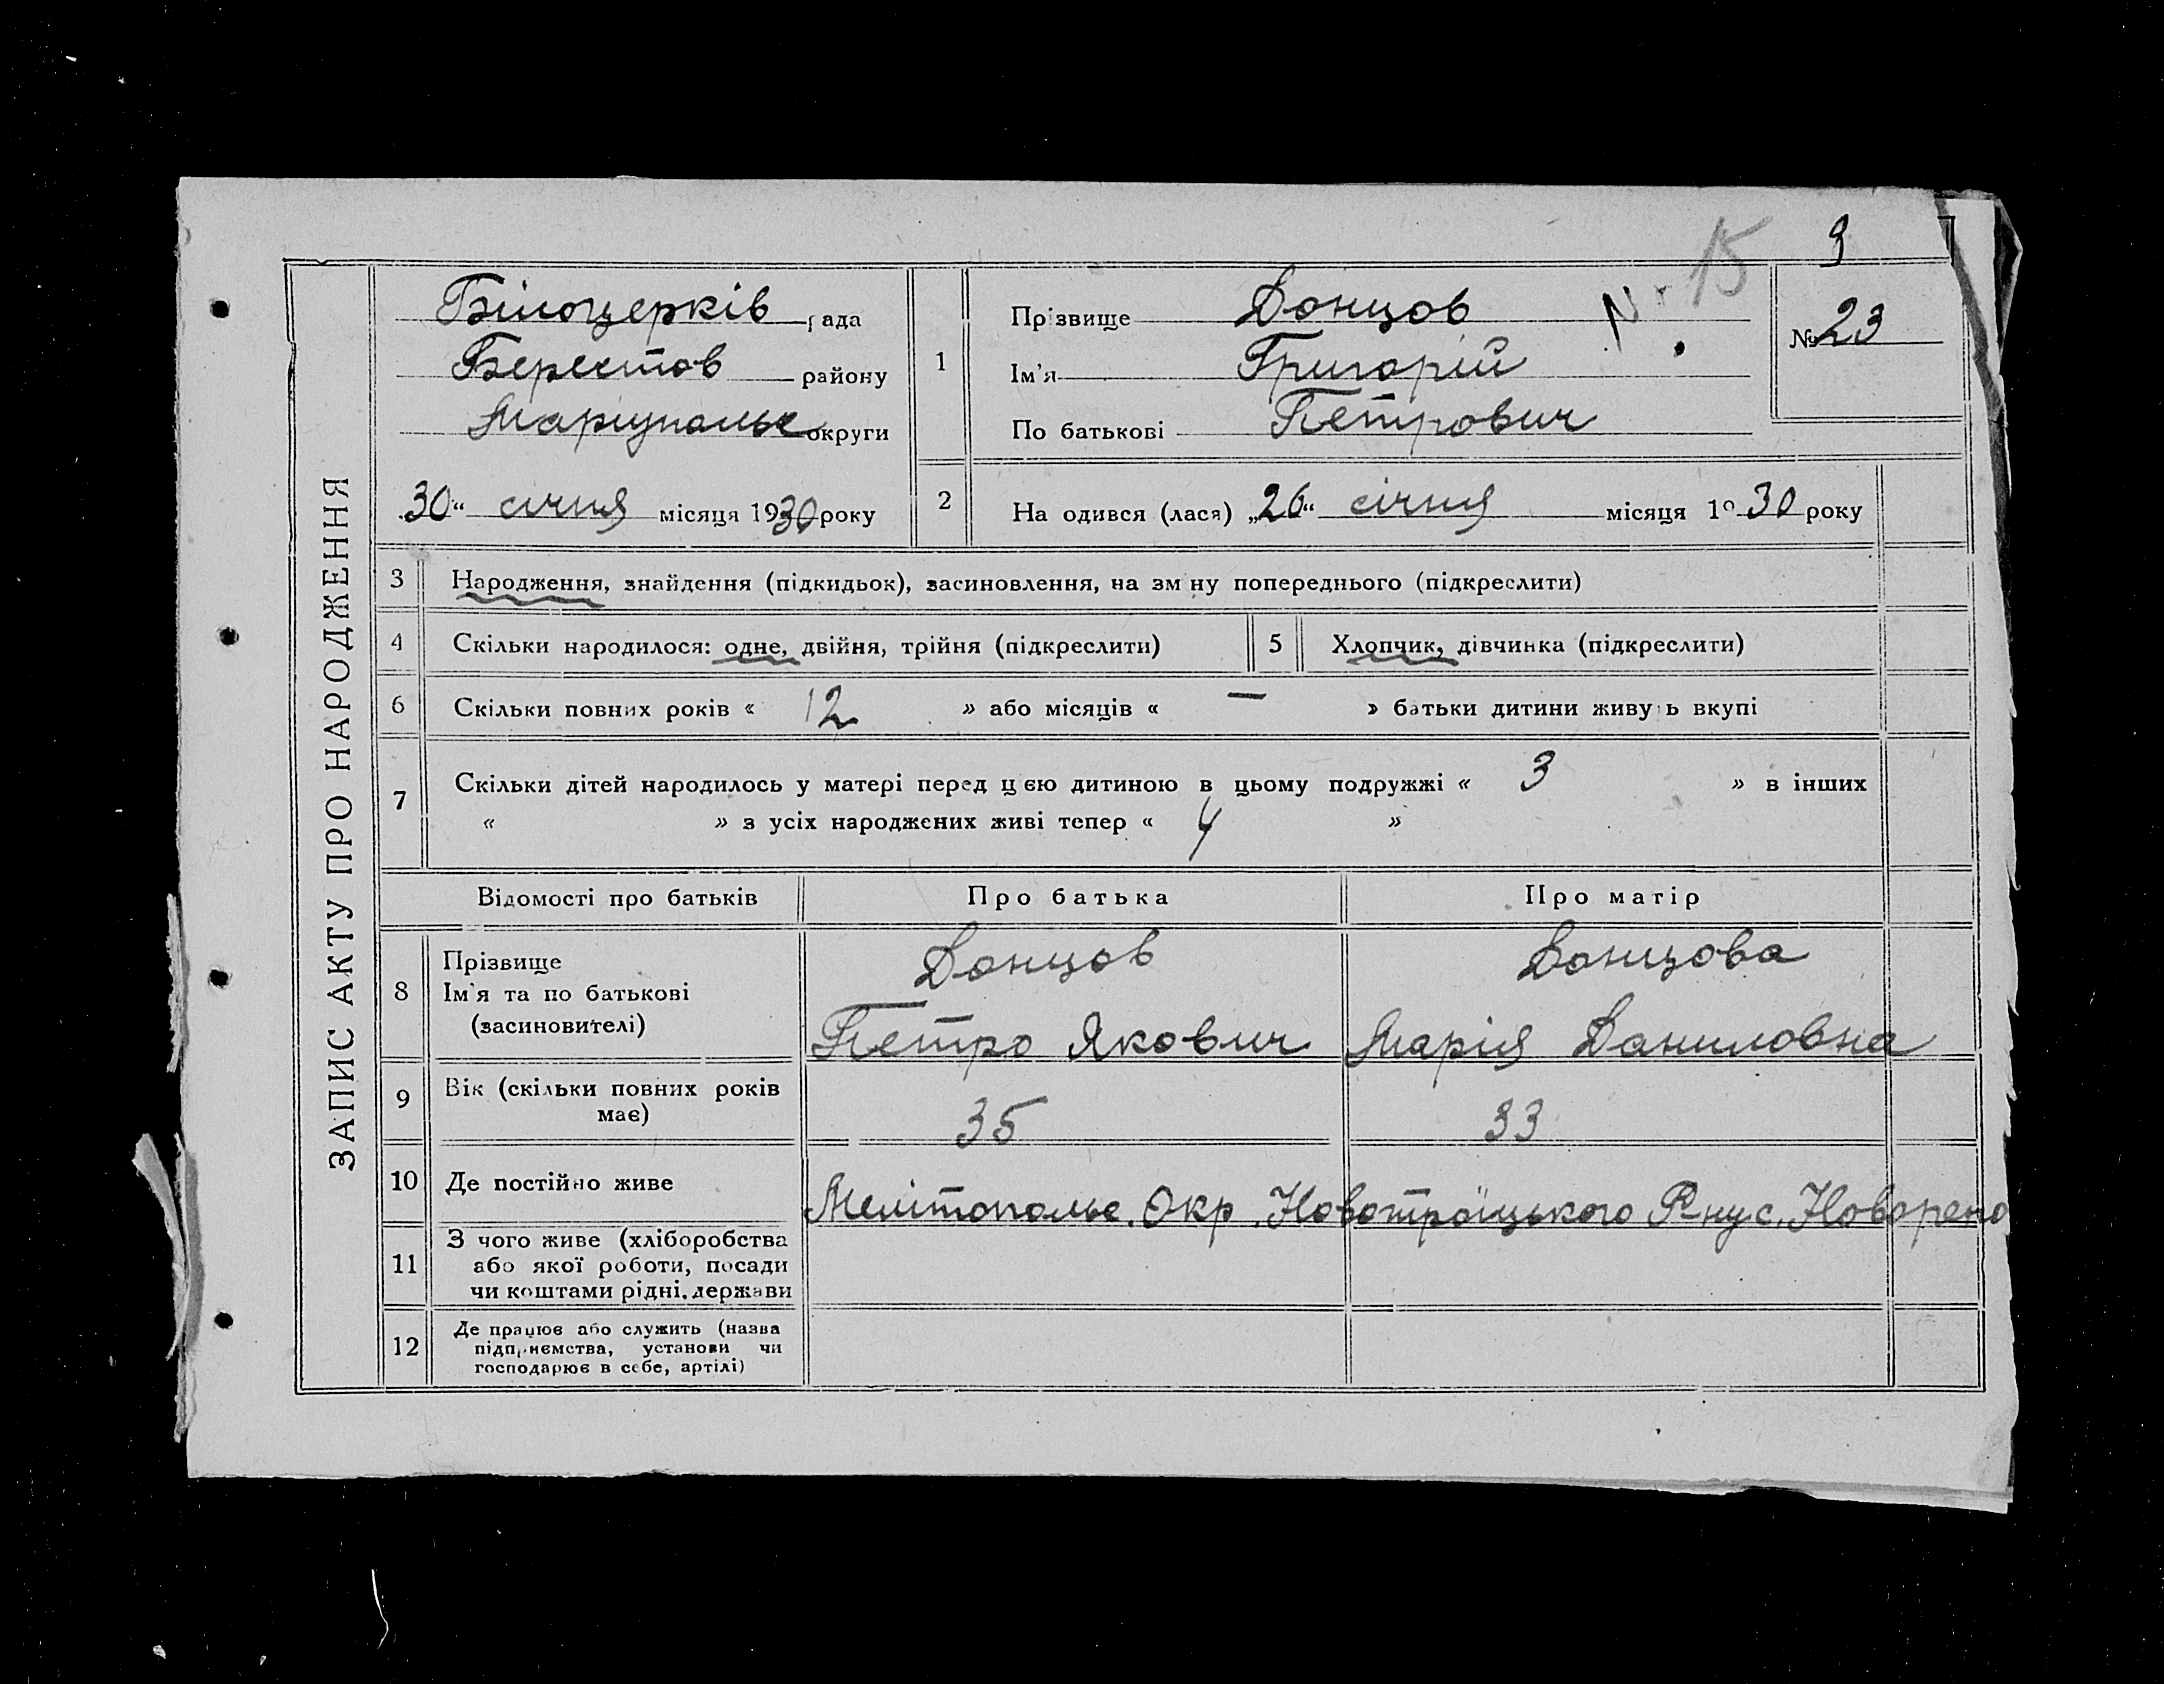 9
N 15
ЗАПИС АКТУ ПРО НАРОДЖЕННЯ
Білоцерків рада
Берестов району
Маріупольс округи
30 “ січня місяця 1930 року
1
Прізвище Донцов
Ім’я Григорій
По батькові Петрович
№ 23
2
На одився (лася) „26“ січня місяця 19 30 року
3 Народження, знайдення (підкидьок), засиновлення, на зм ну попереднього (підкреслити)
4 Скільки народилося: одне, двійня, трійня (підкреслити)
5 Хлопчик, дівчинка (підкреслити)
6 Скільки повних років « 12 » або місяців « — » батьки дитини живуть вкупі
7 Скільки дітей народилось у матері перед цією дитиною в цьому подружжі « 3 » в інших
« » з усіх народжених живі тепер « 4 »
Відомості про батьків Про батька Про матір
8 Прізвище Донцов Донцова
Ім’я та по батькові
(засиновителі) Петро Якович Марія Даниловна
9 Вік (скільки повних років
має) 35 33
10 Де постійно живе Мелітопольс. Окр. Новотроїцького Р-ну с. Новорепо
11 З чого живе (хліборобства
або якої роботи, посади
чи коштами рідні, держави
12 Де працює або служить (назва
підприємства, установи чи
господарює в себе, артілі)